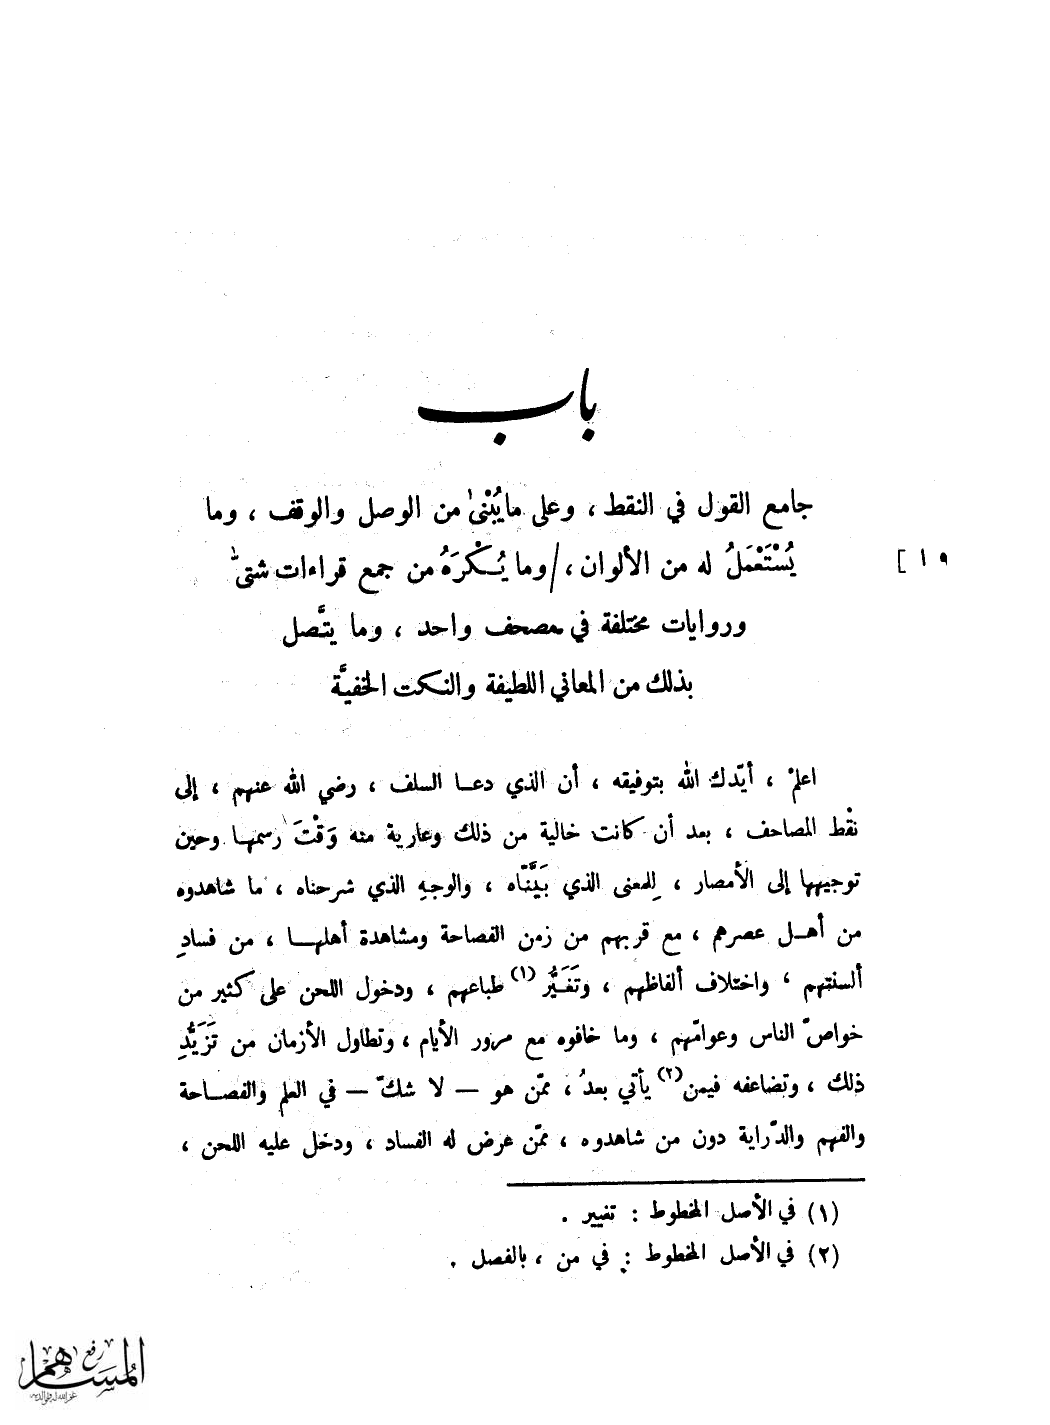 باب
جامع القول في النقط ، وعلى ما يُبْنىٰ من الوصل والوقف ، وما
يُسْتَعْمَلُ له من الألوان ، / وما يُـكْرَهُ من جمع قراءات شتىّٰ
[ ١ ٩
وروايات مختلفة في مصحف واحد ، وما يتَّصل
بذلك من المعاني اللطيفة والنكت الخفيَّة
اعلمْ ، أيّدك الله بتوفيقه ، أن الذي دعـا السلف ، رضي الله عنهم ، إلى
نقْط المصاحف ، بعد أن كانت خالية من ذلك وعارية منه وَقْتَ رسمهـا وحين
توجيهها إلى الأمصار ، لِلمعنى الذي بَيَّنّاه ، والوجهِ الذي شرحناه ، ما شاهدوه
من أهـل عصرهم ، مع قربهم من زمن الفصاحة ومشاهدة أهلهـا ، من فسادِ
ألسنتهم ، واختلاف ألفاظهم ، وتَغَـيُّر (١) طباعهم ، ودخول اللحن على كثير من
خواصّ الناس وعوامّهم ، وما خافوه مع مرور الأيام ، وتطاول الأزمان من تَزَيُّدِ
ذلك ، وتضاعفه فيمن (٢) يأتي بعدُ ، ممّن هو — لا شكّ — في العلم والفصـاحة
والفهم والدّراية دون من شاهدوه ، ممّن عرض له الفساد ، ودخل عليه اللحن ،
(١) في الأصل المخطوط : تغيير .
(٢) في الأصل المخطوط : في من ، بالفصل .
رفع
المساهم
غفر الله له ولوالديه